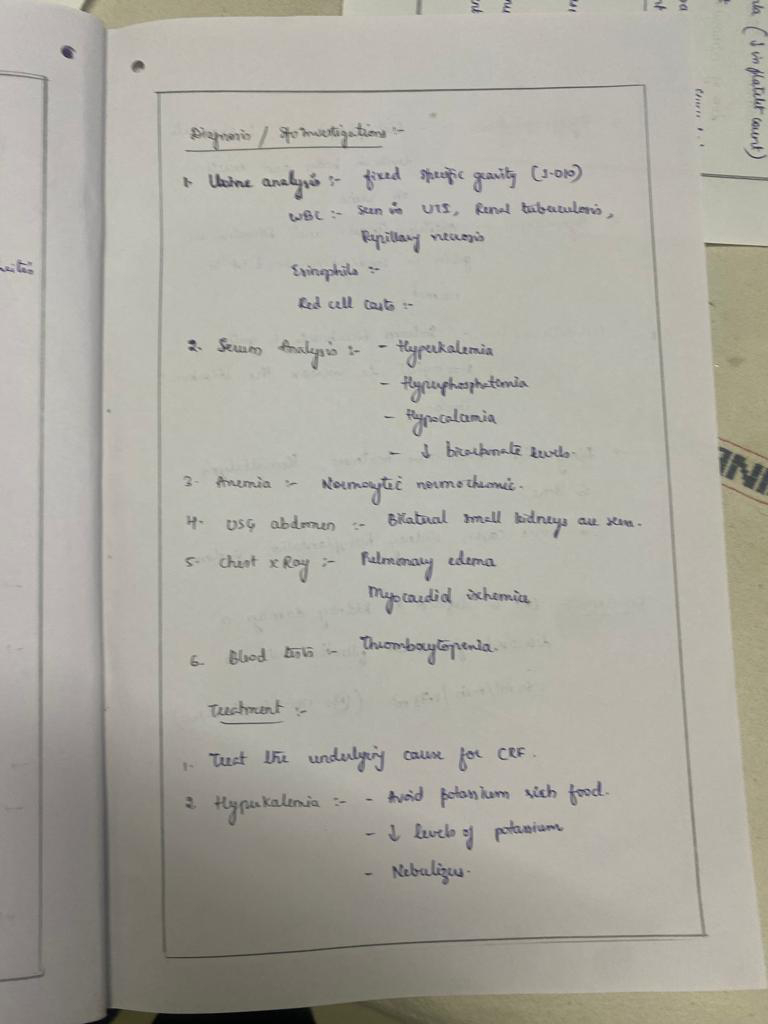 Diagnosis / Investigations :-
1. Urine analysis :- fixed specific gravity (1.010)
WBC :- seen in UTS, Renal tubuculosis,
Papillary necrosis
Esinophils :-
Red cell casts :-
2. Serum Analysis :- - Hyperkalemia
- Hyperphosphatemia
- Hypocalcemia
- ↓ bicarbonate levels.
3. Anemia :- Normocytic normochromic.
4. USG abdomen :- Bilatual small kidneys are seen.
5. Chest x Ray :- Pulmonary edema
Myocardial ischemia
6. Blood tests :- Thrombocytopenia.
Treatment :-
1. Treat the underlying cause for CRF.
2 Hyperkalemia :- - Avoid potassium rich food.
- ↓ levels of potassium
- Nebulizer.
(↓ in platelet count)